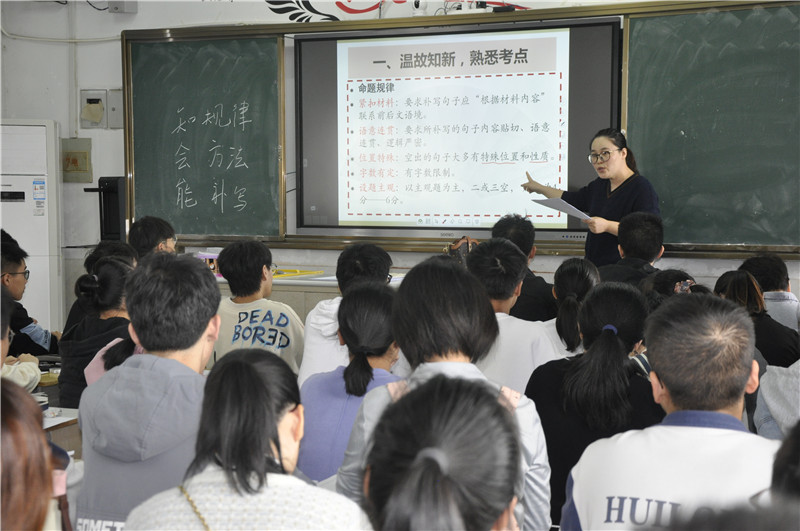 一、温故知新，熟悉考点
命题规律
紧扣材料：要求补写句子应“根据材料内容”
联系前后文语境。
语意连贯：要求所补写的句子内容贴切、语意
连贯，逻辑严密。
位置特殊：空出的句子大多有特殊位置和性质。
字数有定：有字数限制。
设题主观：以主观题为主，二或三空，
分——6分。
知规律
会方法
能补写
DEAD
BORED
SOMET
HUILO